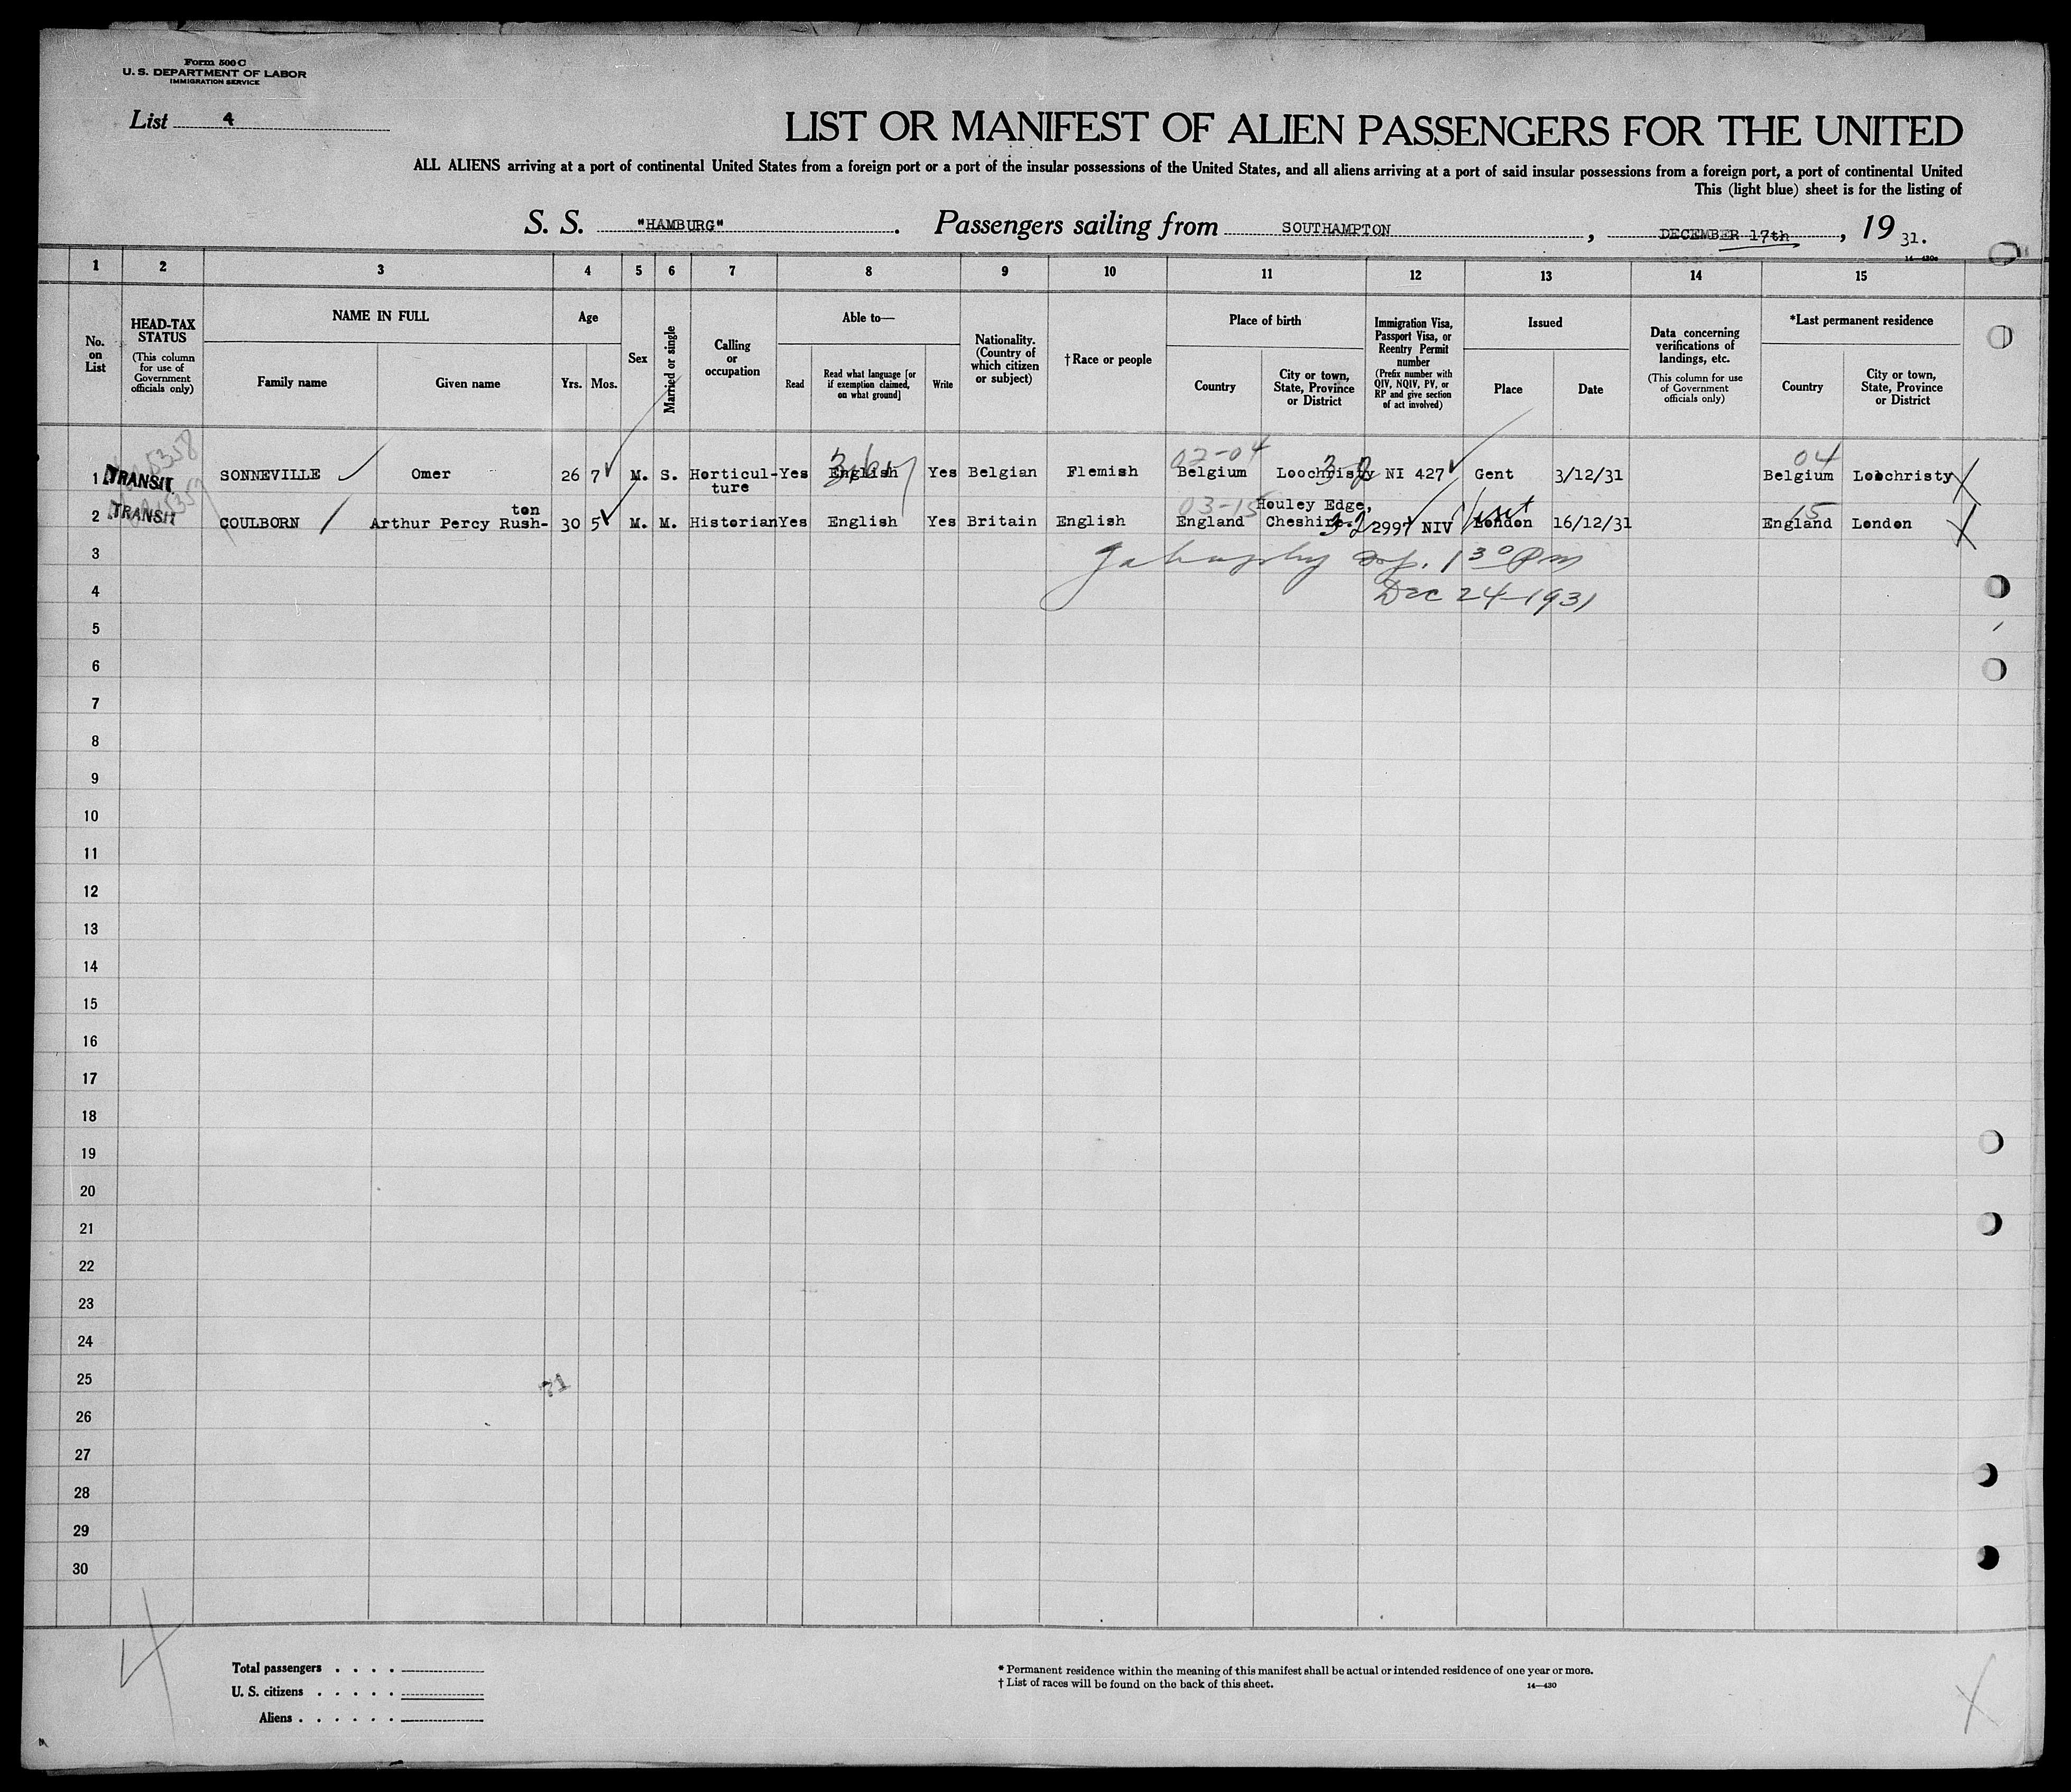 Form 500 C
U. S. DEPARTMENT OF LABOR
IMMIGRATION SERVICE
List 4
LIST OR MANIFEST OF ALIEN PASSENGERS FOR THE UNITED
ALL ALIENS arriving at a port of continental United States from a foreign port or a port of the insular possessions of the United States, and all aliens arriving at a port of said insular possessions from a foreign port, a port of continental United
This (light blue) sheet is for the listing of
S. S. "HAMBURG". Passengers sailing from SOUTHAMPTON, DECEMBER 17th, 19 31.
14—430a
1 2 3 4 5 6 7 8 9 10 11 12 13 14 15
No. on List
HEAD-TAX STATUS
(This column for use of Government officials only)
NAME IN FULL
Family name
Given name
Age
Yrs. Mos.
Sex
Married or single
Calling or occupation
Able to—
Read
Read what language [or if exemption claimed, on what ground]
Write
Nationality. (Country of which citizen or subject)
†Race or people
Place of birth
Country
City or town, State, Province or District
Immigration Visa, Passport Visa, or Reentry Permit number
(Prefix number with QIV, NQIV, PV, or RP and give section of act involved)
Issued
Place
Date
Data concerning verifications of landings, etc.
(This column for use of Government officials only)
*Last permanent residence
Country
City or town, State, Province or District
02-04 04
1 TRANSIT SONNEVILLE Omer 26 7 M. S. Horticulture Yes English Yes Belgian Flemish Belgium Loochristy 3-2 NI 427 Gent 3/12/31 Belgium Loochristy
03-15 15
2 TRANSIT COULBORN Arthur Percy Rushton 30 5 M. M. Historian Yes English Yes Britain English England Houley Edge, Cheshire 3-2 2997 NIV London Visit 16/12/31 England London
3 1 30 Pm
4 Dec 24-1931
5
6
7
8
9
10
11
12
13
14
15
16
17
18
19
20
21
22
23
24
25
26
27
28
29
30
4
Total passengers
U. S. citizens
Aliens
* Permanent residence within the meaning of this manifest shall be actual or intended residence of one year or more.
† List of races will be found on the back of this sheet.
14—430
X